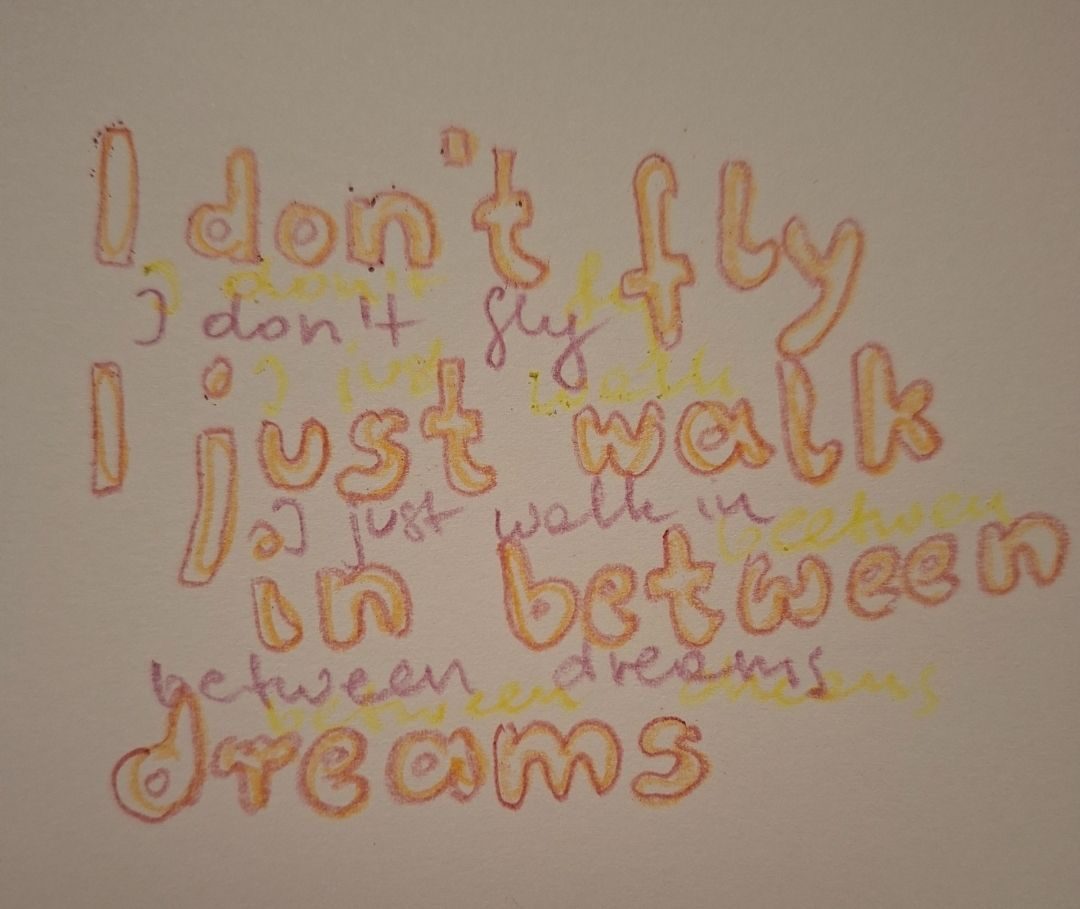 I don't fly
I don't
I don't fly
I just walk
I just walk
I just walk in
beetween
in between
between dreams
between dreams
dreams